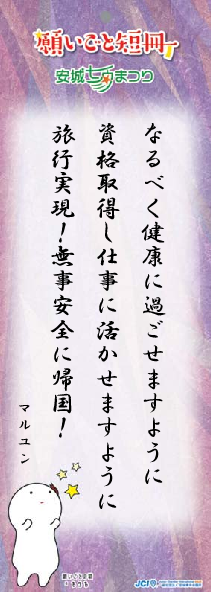 願いごと短冊
安城七夕まつり
なるべく健康に過ごせますように
資格取得し仕事に活かせますように
旅行実現！無事安全に帰国！
マルユン
JCI